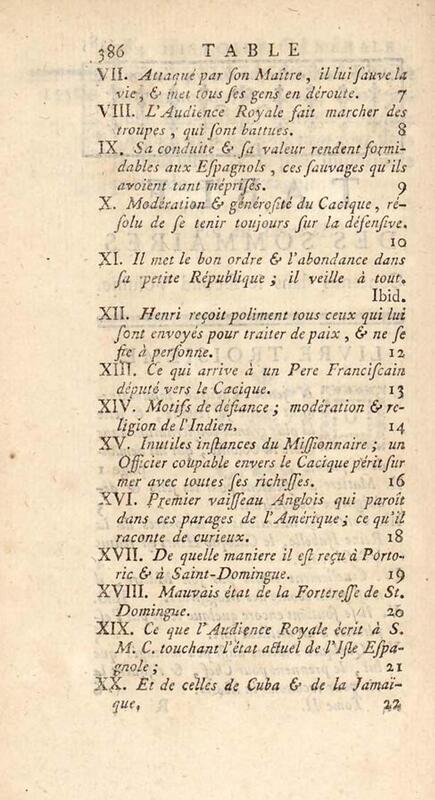 386 TABLE
VII. Attaqué par ſon Maître, il lui ſauve la
vie, & met tous ſes gens en déroute. 7
VIII. L'Audience Royale fait marcher des
troupes, qui ſont battues. 8
IX. Sa conduite & ſa valeur rendent formi-
dables aux Eſpagnols, ces ſauvages qu'ils
avoient tant mépriſés. 9
X. Modération & généroſité du Cacique, ré-
ſolu de ſe tenir toujours ſur la défenſive.
10
XI. Il met le bon ordre & l'abondance dans
ſa petite République; il veille à tout.
Ibid.
XII. Henri reçoit poliment tous ceux qui lui
ſont envoyés pour traiter de paix, & ne ſe
fie à perſonne. 12
XIII. Ce qui arrive à un Pere Franciſcain
député vers le Cacique. 13
XIV. Motifs de défiance; modération & re-
ligion de l'Indien. 14
XV. Inutiles inſtances du Miſſionnaire; un
Officier coupable envers le Cacique périt ſur
mer avec toutes ſes richeſſes. 16
XVI. Premier vaiſſeau Anglois qui paroît
dans ces parages de l'Amérique; ce qu'il
raconte de curieux. 18
XVII. De quelle maniere il eſt reçu à Porto-
ric & à Saint-Domingue. 19
XVIII. Mauvais état de la Fortereſſe de St.
Domingue. 20
XIX. Ce que l'Audience Royale écrit à S.
M. C. touchant l'état actuel de l'Iſle Eſpa-
gnole; 21
XX. Et de celles de Cuba & de la Jamaï-
que, 22